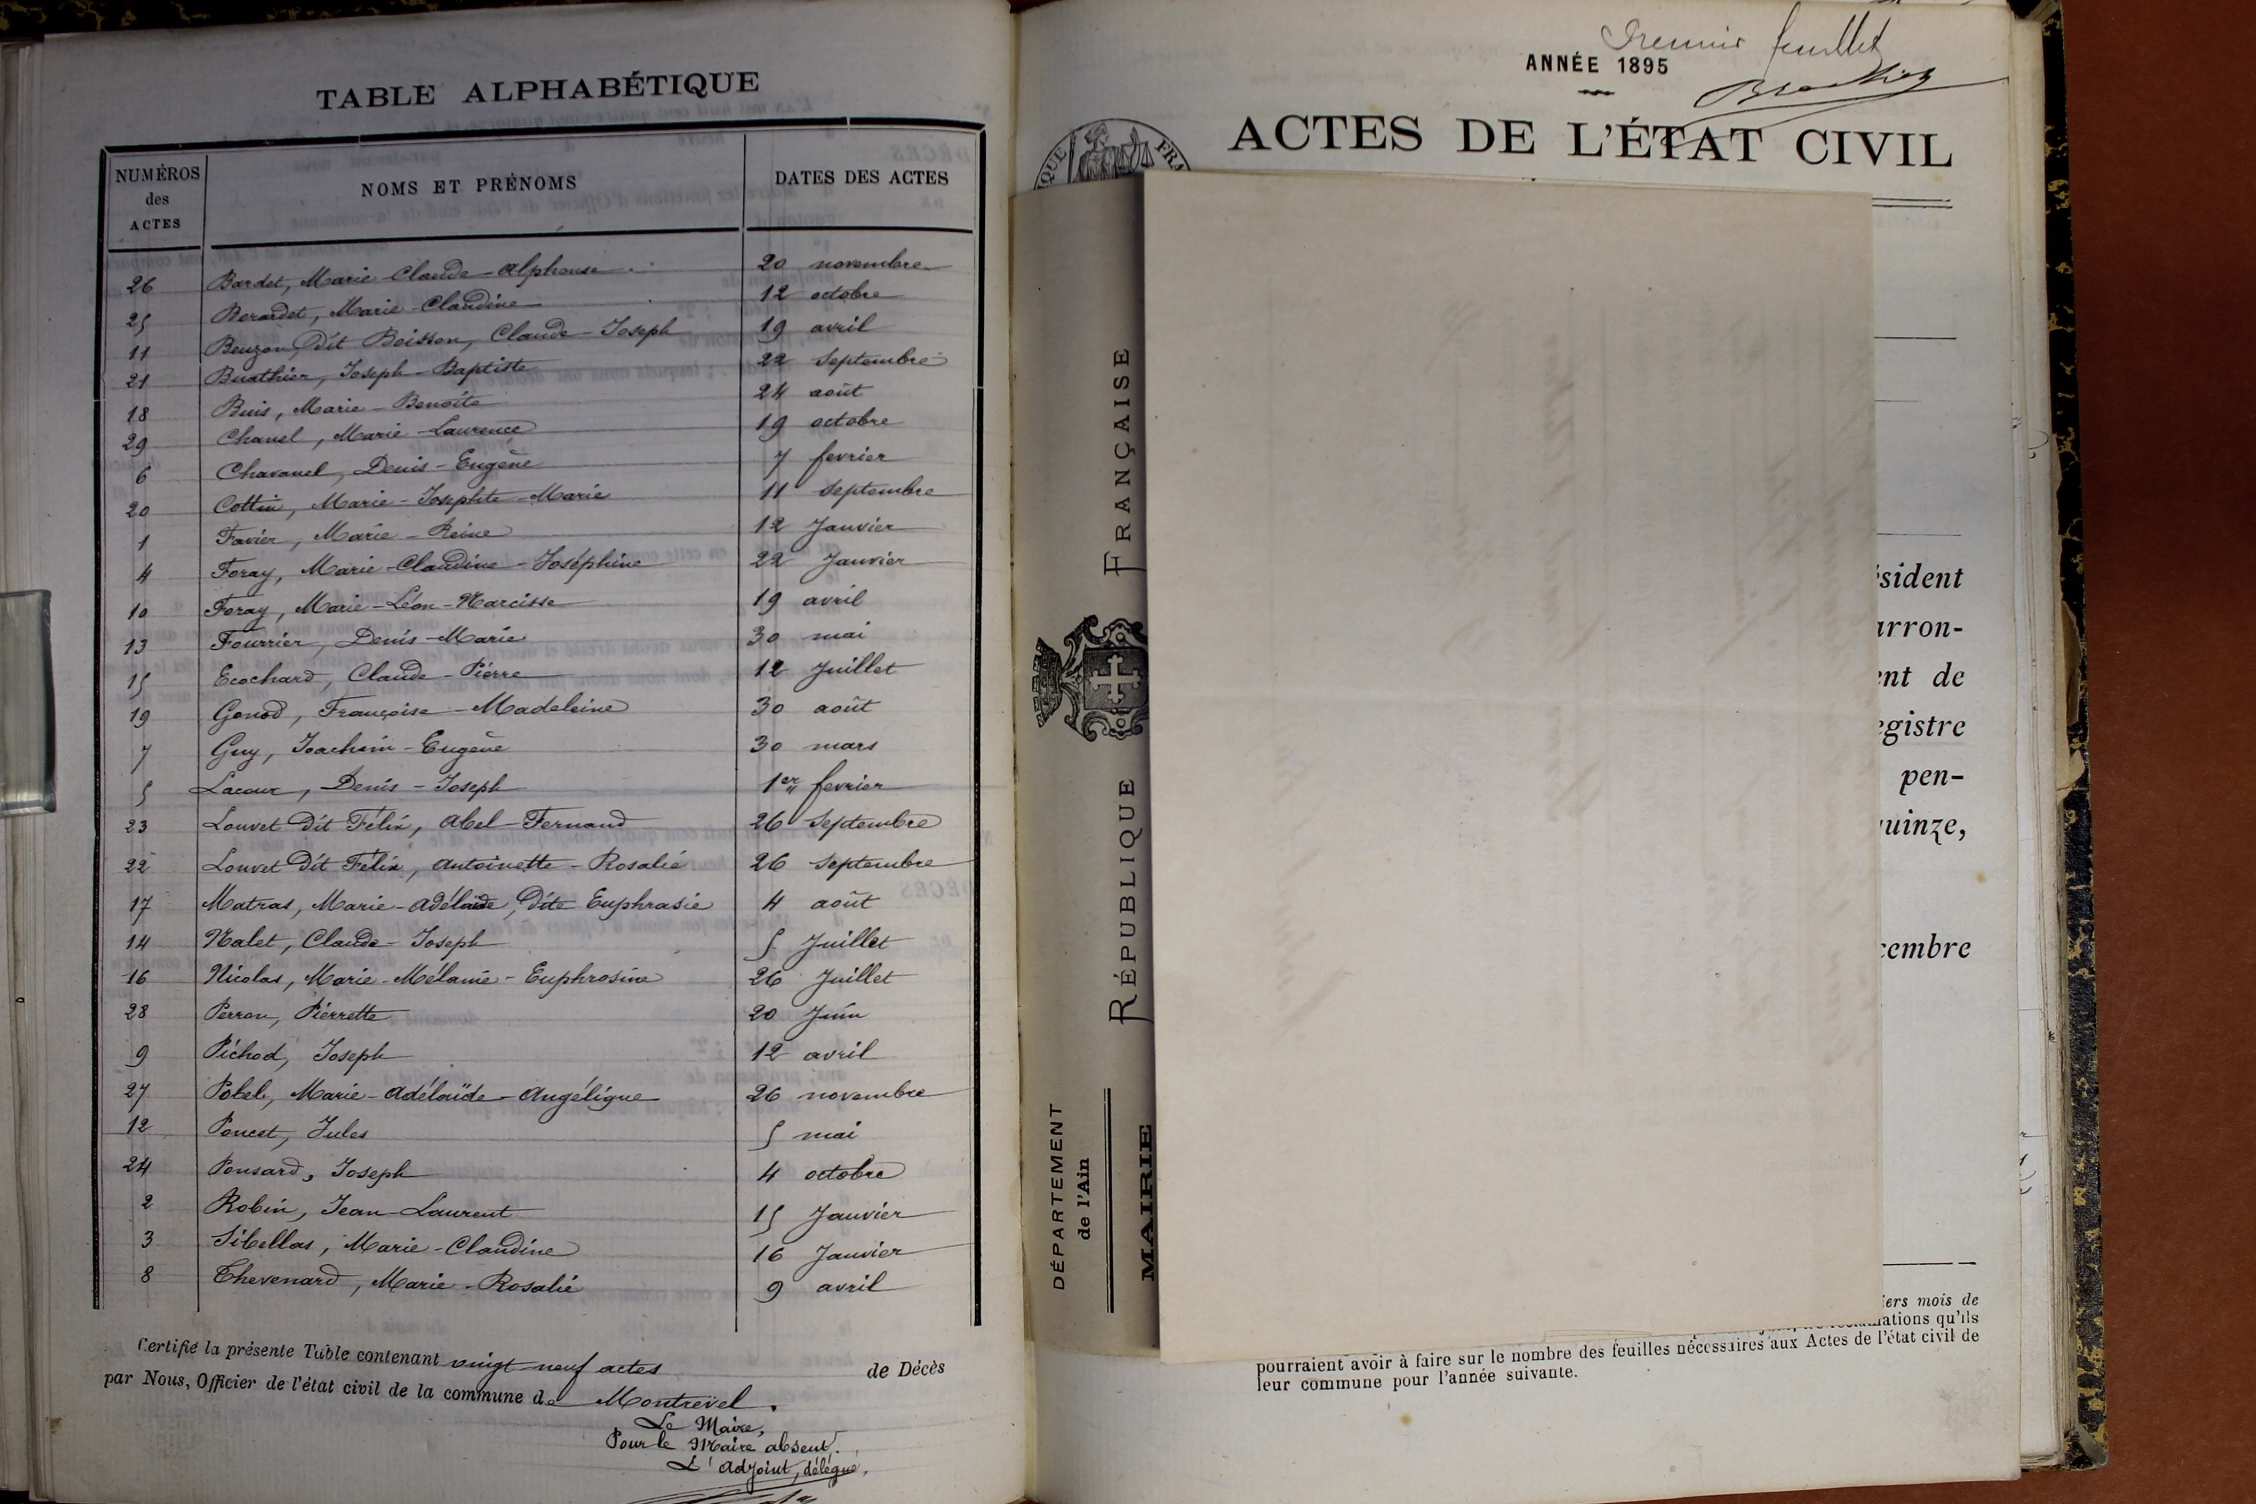 TABLE ALPHABÉTIQUE
NUMÉROS des ACTES
NOMS ET PRÉNOMS
DATES DES ACTES
26 Bardet, Marie-Claude-Alphonse 20 novembre
25 Berardet, Marie-Claudine 12 octobre
11 Beuzon, dit Boisson, Claude-Joseph 19 avril
21 Buathier, Joseph-Baptiste 22 Septembre
18 Buis, Marie-Benoîte 24 août
29 Chanel, Marie-Laurence 19 octobre
6 Chavanel, Denis-Eugène 7 fevrier
20 Cottin, Marie-Josephte-Marie 11 Septembre
1 Favier, Marie-Reine 12 Janvier
4 Foray, Marie-Claudine-Joséphine 22 Janvier
10 Foray, Marie-Léon-Narcisse 19 avril
13 Fourrier, Denis-Marie 30 mai
15 Ecochard, Claude-Pierre 12 Juillet
19 Gonod, Françoise-Madeleine 30 août
7 Guy, Joachim-Eugène 30 mars
5 Lacour, Denis-Joseph 1er fevrier
23 Louvet dit Félix, Abel-Fernand 26 Septembre
22 Louvet dit Félix, Antoinette-Rosalie 26 Septembre
17 Matras, Marie-Adélaïde, dite Euphrasie 4 août
14 Nalet, Claude-Joseph 5 Juillet
16 Nicolas, Marie-Mélanie-Euphrosine 26 Juillet
28 Perron, Pierrette 20 Juin
9 Pichod, Joseph 12 avril
27 Marie-Adélaïde-Angélique 26 novembre
12 Poncet, Jules 5 mai
24 Ponsard, Joseph 4 octobre
2 Robin, Jean-Laurent 15 Janvier
3 Sibellas, Marie-Claudine 16 Janvier
8 Thevenard, Marie-Rosalie 9 avril
Certifié la présente Table contenant vingt-neuf actes de Décès
par Nous, Officier de l'état civil de la commune de Montrevel.
Le Maire,
Pour le Maire absent.
L'adjoint, délégué,
premier feuillet
ANNÉE 1895
ACTES DE L'ÉTAT CIVIL
RÉPUBLIQUE FRANÇAISE
DÉPARTEMENT
de l'Ain
MAIRIE
ésident
arron-
ent de
egistre
pen-
uinze,
cembre
iers mois de
ations qu'ils
pourraient avoir à faire sur le nombre des feuilles nécessaires aux Actes de l'état civil de
leur commune pour l'année suivante.